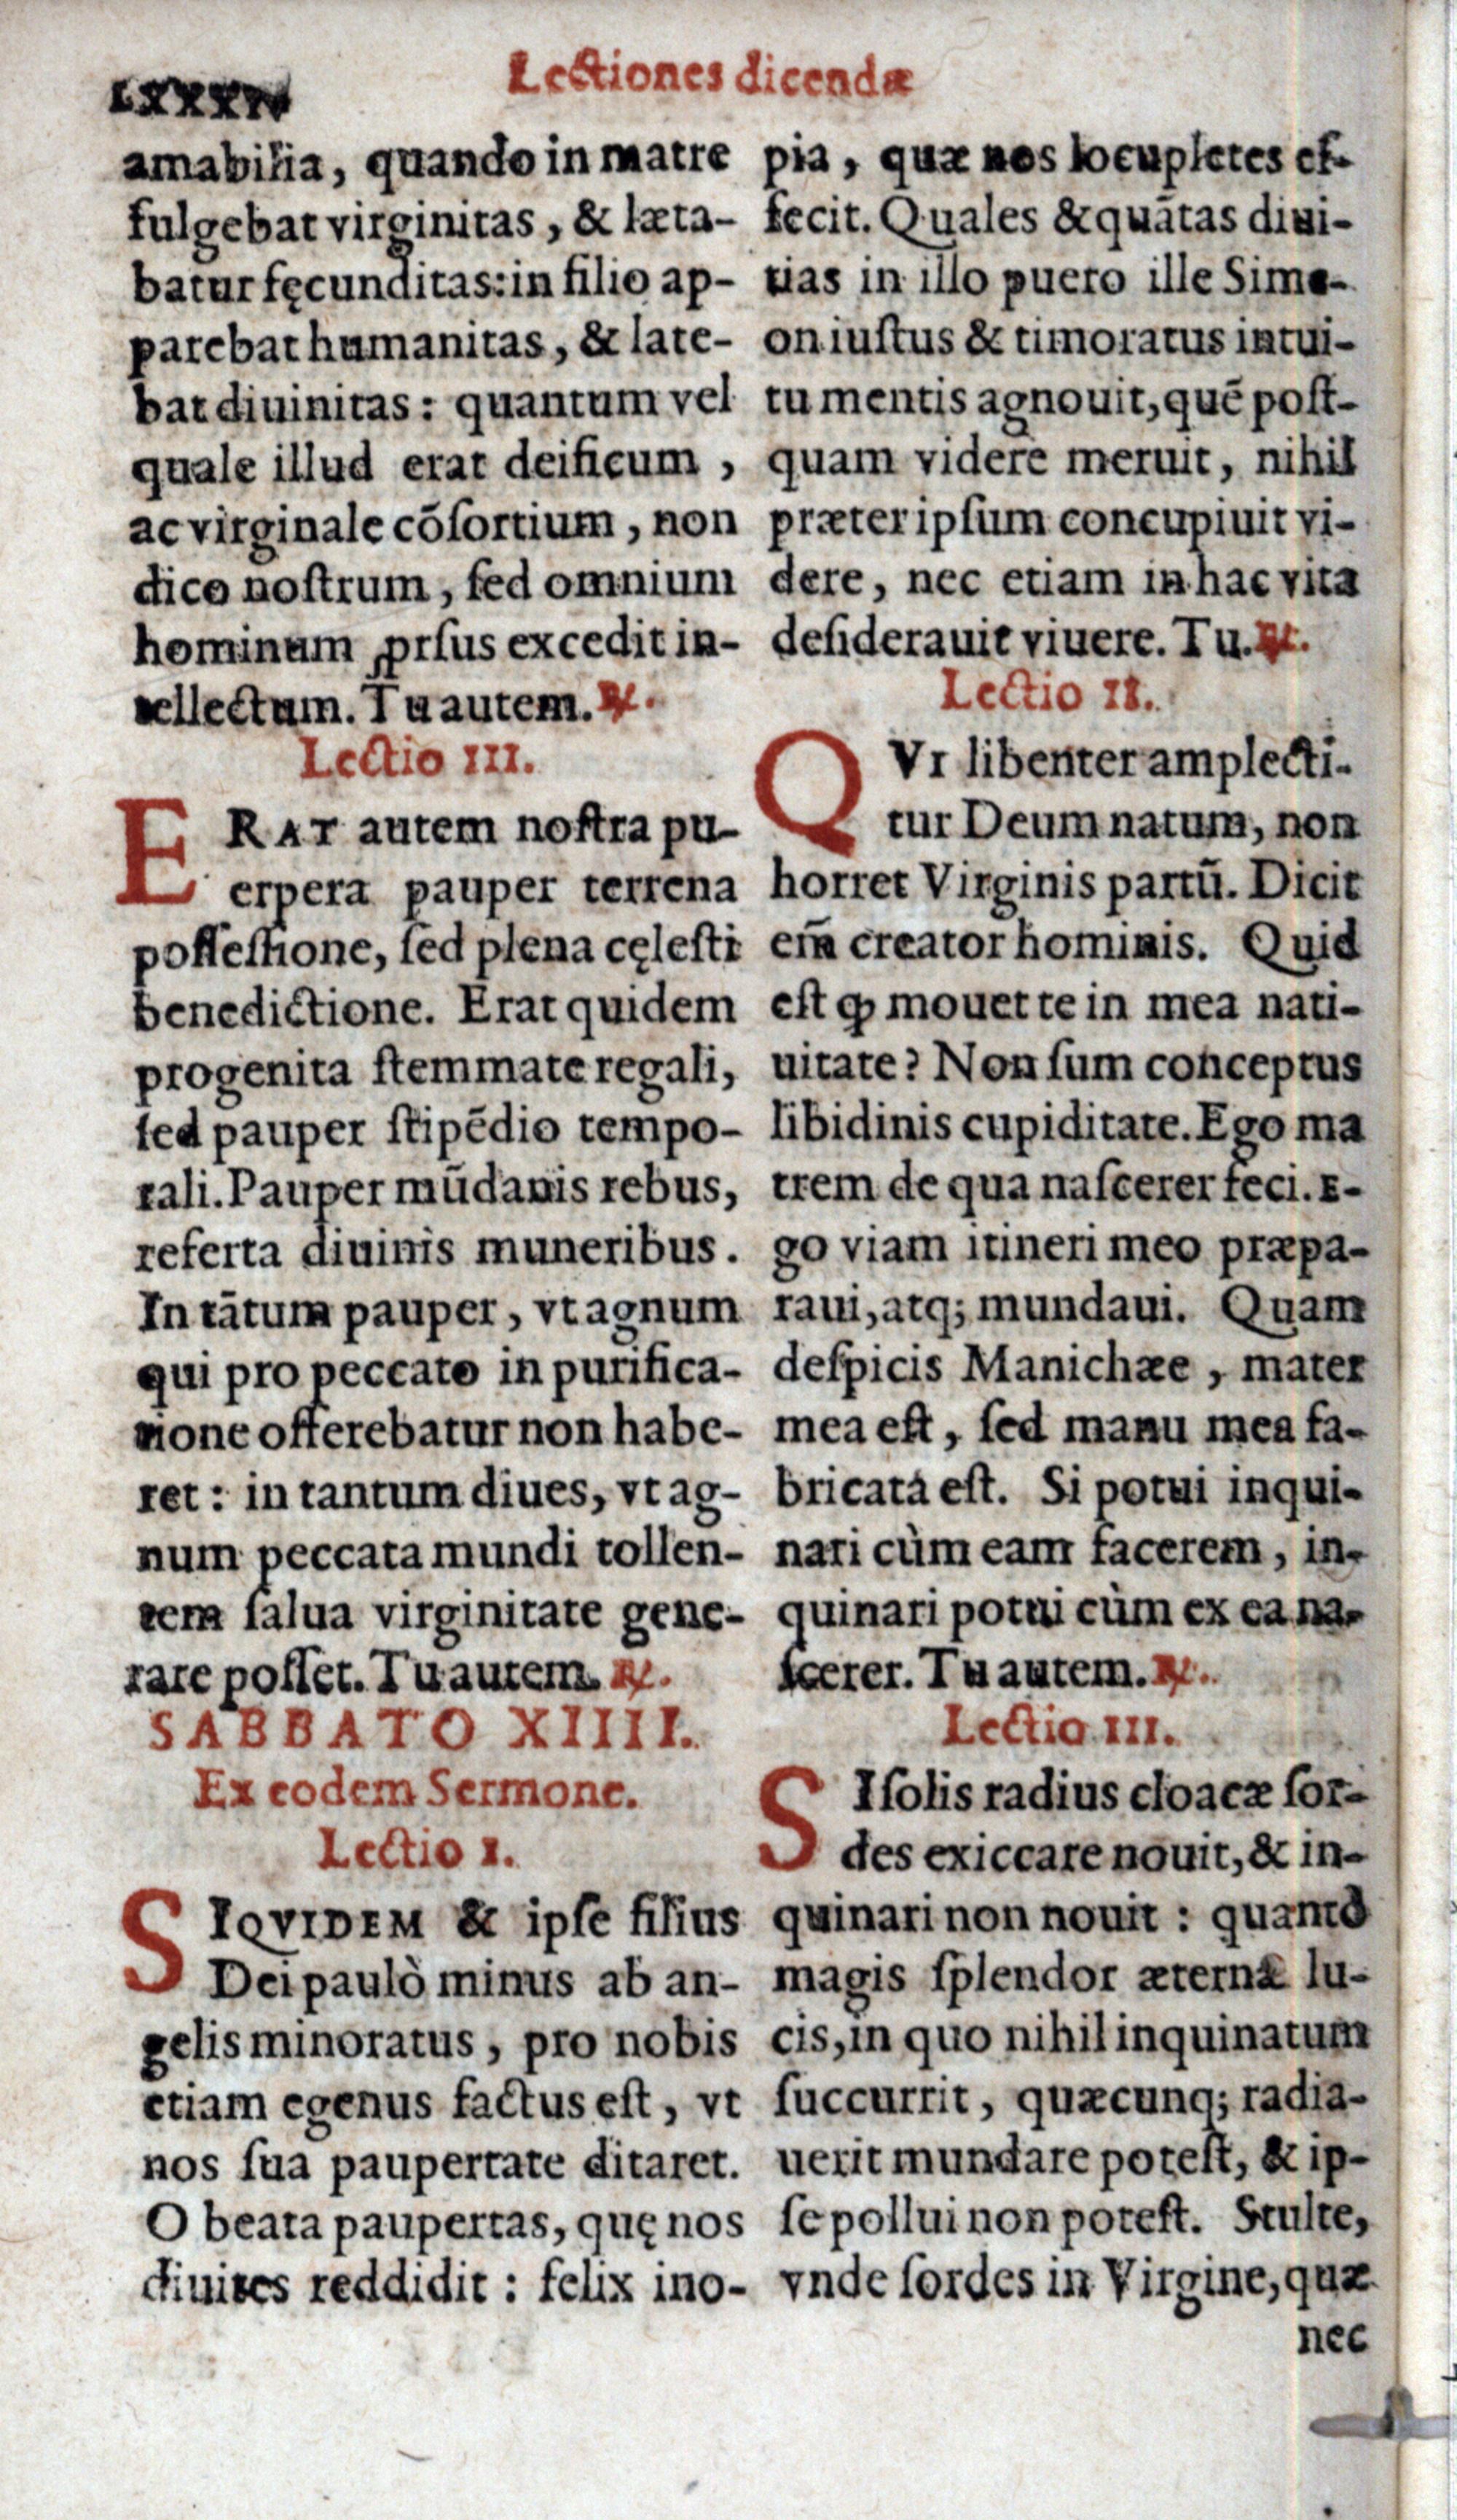 LXXXIV
Lectiones dicendæ
amabilia, quando in matre
fulgebat virginitas, & læta-
batur fęcunditas: in filio ap-
parebat humanitas, & late-
bat diuinitas: quantum vel
quale illud erat deificum,
ac virginale cōſortium, non
dico noſtrum, ſed omnium
hominum ꝓrſus excedit in-
tellectum. Tu autem. ℟.
Lectio III.
ERAT autem noſtra pu-
erpera pauper terrena
poſſeſſione, ſed plena cęleſti
benedictione. Erat quidem
progenita ſtemmate regali,
ſed pauper ſtipēdio tempo-
rali. Pauper mūdanis rebus,
referta diuinis muneribus.
In tātum pauper, vt agnum
qui pro peccato in purifica-
tione offerebatur non habe-
ret: in tantum diues, vt ag-
num peccata mundi tollen-
tem ſalua virginitate gene-
rare poſſet. Tu autem. ℟.
SABBATO XIIII.
Ex eodem Sermone.
Lectio I.
SIQVIDEM & ipſe filius
Dei paulò minus ab an-
gelis minoratus, pro nobis
etiam egenus factus eſt, vt
nos ſua paupertate ditaret.
O beata paupertas, quę nos
diuites reddidit: felix ino-
pia, quæ nos locupletes ef-
fecit. Quales & quātas diui-
tias in illo puero ille Sime-
on iuſtus & timoratus intui-
tu mentis agnouit, quē poſt-
quam videre meruit, nihil
præter ipſum concupiuit vi-
dere, nec etiam in hac vita
deſiderauit viuere. Tu. ℟.
Lectio II.
QVI libenter amplecti-
tur Deum natum, non
horret Virginis partū. Dicit
em̄ creator hominis. Quid
eſt ꝙ mouet te in mea nati-
uitate? Non ſum conceptus
libidinis cupiditate. Ego ma
trem de qua naſcerer feci. E-
go viam itineri meo præpa-
raui, atq; mundaui. Quam
deſpicis Manichæe, mater
mea eſt, ſed manu mea fa-
bricata eſt. Si potui inqui-
nari cùm eam facerem, in-
quinari potui cùm ex ea na-
ſcerer. Tu autem. ℟.
Lectio III.
SI ſolis radius cloacæ ſor-
des exiccare nouit, & in-
quinari non nouit: quantò
magis ſplendor æternæ lu-
cis, in quo nihil inquinatum
ſuccurrit, quæcunq; radia-
uerit mundare poteſt, & ip-
ſe pollui non poteſt. Stulte,
vnde ſordes in Virgine, quæ
nec